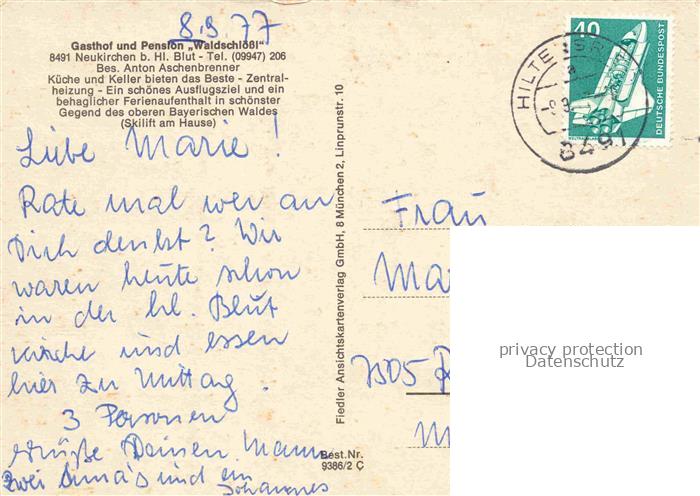 8.9.77
Gasthof und Pension „Waldschlößl"
8491 Neukirchen b. Hl. Blut - Tel. (09947) 206
Bes. Anton Aschenbrenner
Küche und Keller bieten das Beste - Zentral-
heizung - Ein schönes Ausflugsziel und ein
behaglicher Ferienaufenthalt in schönster
Gegend des oberen Bayerischen Waldes
(Skilift am Hause)
Liebe Marie!
Rate mal wer an
Dich denkt? Wir
waren heute schon
in der hl. Blut
kirche und essen
hier zu Mittag.
3 Personen
grüße Deinen Mann
zwei Oma's und ein
Johannes
Fiedler Ansichtskartenverlag GmbH, 8 München 2, Linprunstr. 10
Best.Nr.
9386/2 Ç
40
DEUTSCHE BUNDESPOST
8491
Frau
privacy protection
Datenschutz